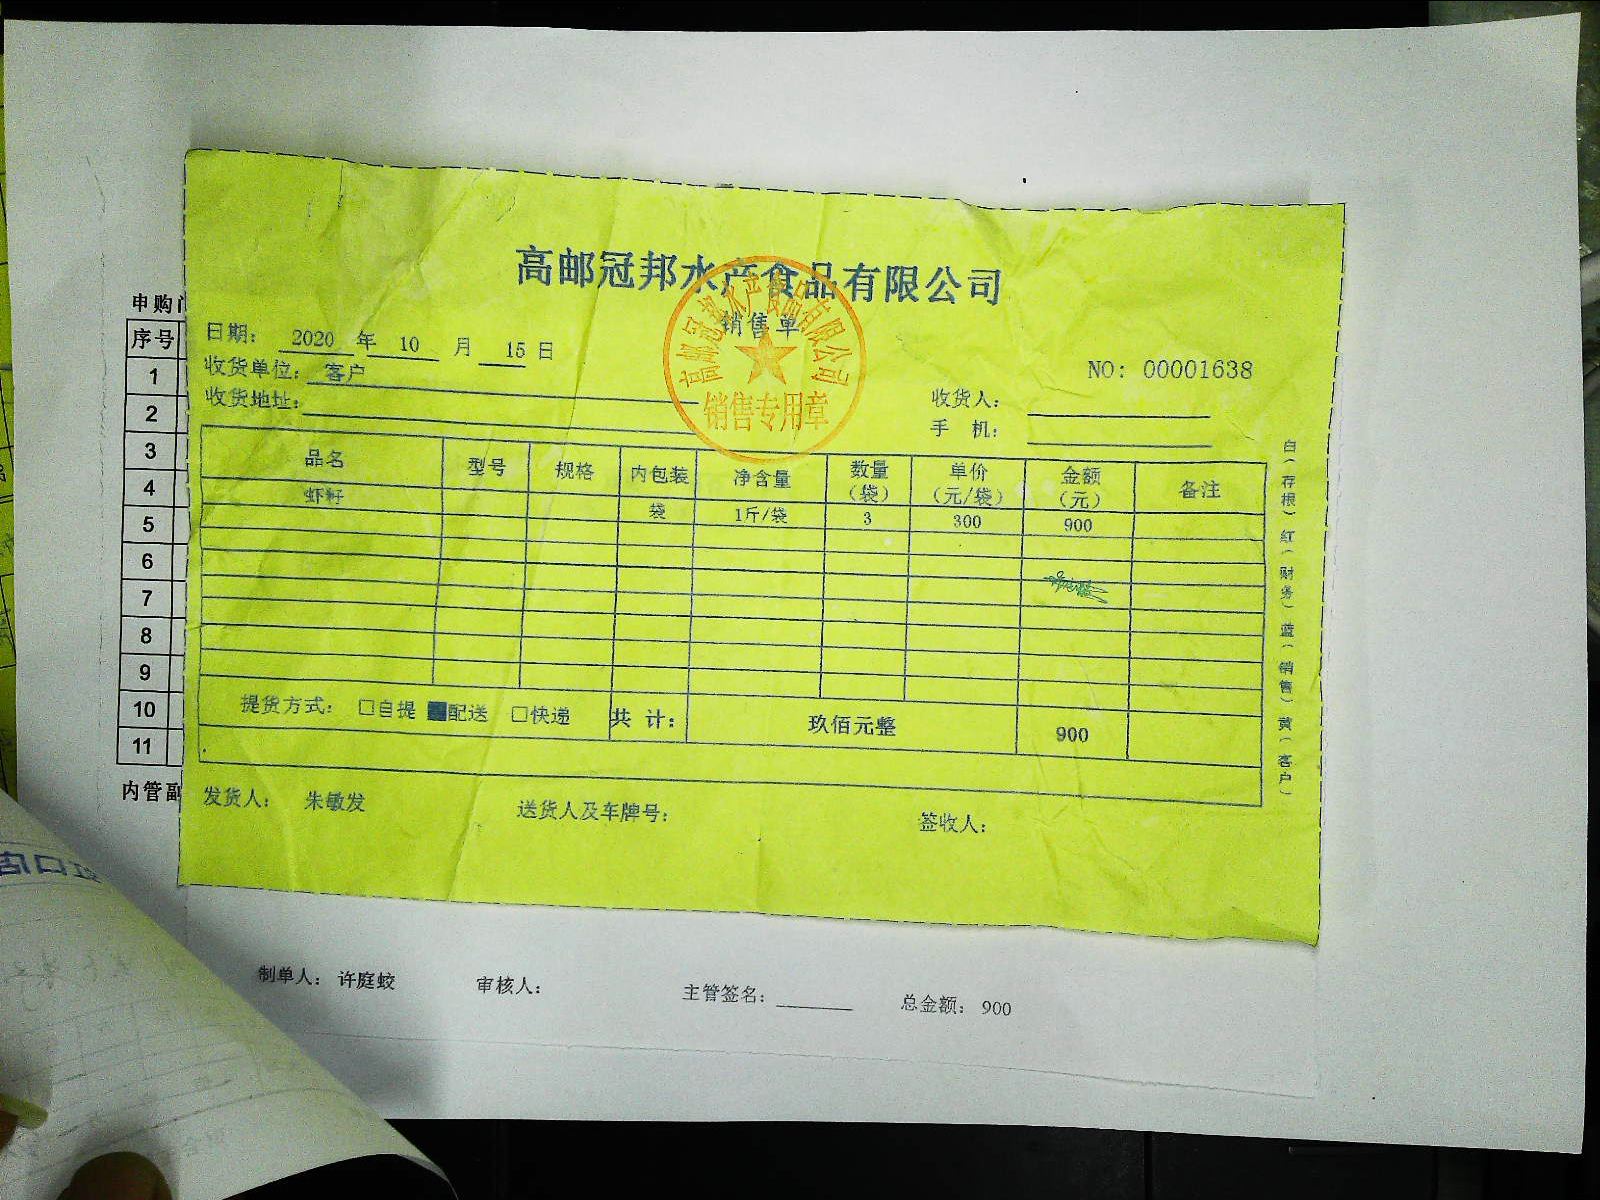 高邮冠邦水产食品有限公司
销售单
高邮冠邦水产食品有限公司
销售专用章
日期： 2020 年 10 月 15 日
NO: 00001638
收货单位： 客户
收货地址：
收货人：
手 机：
品名 型号 规格 内包装 净含量 数量（袋） 单价（元/袋） 金额（元） 备注
虾籽 袋 1斤/袋 3 300 900
提货方式： □自提 ■配送 □快递 共 计： 玖佰元整 900
发货人： 朱敏发 送货人及车牌号： 签收人：
白（存根）红（财务）蓝（销售）黄（客户）
申购
序号
1
2
3
4
5
6
7
8
9
10
11
内管副
制单人： 许庭蛟 审核人： 主管签名： 总金额： 900